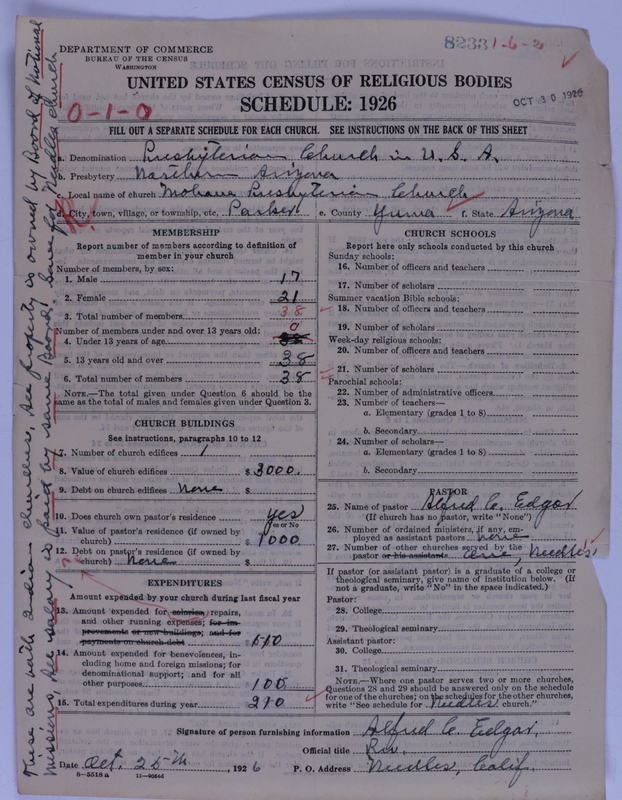 82331-6-2
DEPARTMENT OF COMMERCE
BUREAU OF THE CENSUS
WASHINGTON
UNITED STATES CENSUS OF RELIGIOUS BODIES
SCHEDULE: 1926
OCT 30 1926
0-1-0
FILL OUT A SEPARATE SCHEDULE FOR EACH CHURCH. SEE INSTRUCTIONS ON THE BACK OF THIS SHEET
a. Denomination Presbyterian Church in U. S. A.
b. Presbytery Northern Arizona
c. Local name of church Mohave Presbyterian Church
d. City, town, village, or township, etc. Parker e. County Yuma f. State Arizona
MEMBERSHIP
Report number of members according to definition of
member in your church
Number of members, by sex:
1. Male 17
2. Female 21
3. Total number of members 38
Number of members under and over 13 years old: 0
4. Under 13 years of age 38
5. 13 years old and over 38
6. Total number of members 38
NOTE.—The total given under Question 6 should be the
same as the total of males and females given under Question 3.
CHURCH BUILDINGS
See instructions, paragraphs 10 to 12
7. Number of church edifices 1
8. Value of church edifices $ 3000.
9. Debt on church edifices None $
10. Does church own pastor's residence yes
Yes or No
11. Value of pastor's residence (if owned by
church) $ 1000
12. Debt on pastor's residence (if owned by
church) None $
EXPENDITURES
Amount expended by your church during last fiscal year
13. Amount expended for salaries, repairs,
and other running expenses; for im-
provements or new buildings; and for
payments on church debt $ 110
14. Amount expended for benevolences, in-
cluding home and foreign missions; for
denominational support; and for all
other purposes 100.
15. Total expenditures during year 210
CHURCH SCHOOLS
Report here only schools conducted by this church
Sunday schools:
16. Number of officers and teachers
17. Number of scholars
Summer vacation Bible schools:
18. Number of officers and teachers
19. Number of scholars
Week-day religious schools:
20. Number of officers and teachers
21. Number of scholars
Parochial schools:
22. Number of administrative officers
23. Number of teachers—
a. Elementary (grades 1 to 8)
b. Secondary
24. Number of scholars—
a. Elementary (grades 1 to 8)
b. Secondary
PASTOR
25. Name of pastor Alfred C. Edgar
(If church has no pastor, write "None")
26. Number of ordained ministers, if any, em-
ployed as assistant pastors none
27. Number of other churches served by the
pastor or his assistants one Needles
If pastor (or assistant pastor) is a graduate of a college or
theological seminary, give name of institution below. (If
not a graduate, write "No" in the space indicated.)
Pastor:
28. College
29. Theological seminary
Assistant pastor:
30. College
31. Theological seminary
NOTE.—Where one pastor serves two or more churches,
Questions 28 and 29 should be answered only on the schedule
for one of the churches; on the schedules for the other churches,
write "See schedule for Needles church."
Signature of person furnishing information Alfred C. Edgar.
Official title Rev.
Date Oct. 25th, 1926 P. O. Address Needles, Calif.
8-5518 a
These are both Indian churches, the property is owned by Board of National
Missions, the salary is paid by same Board. Same for Needles church